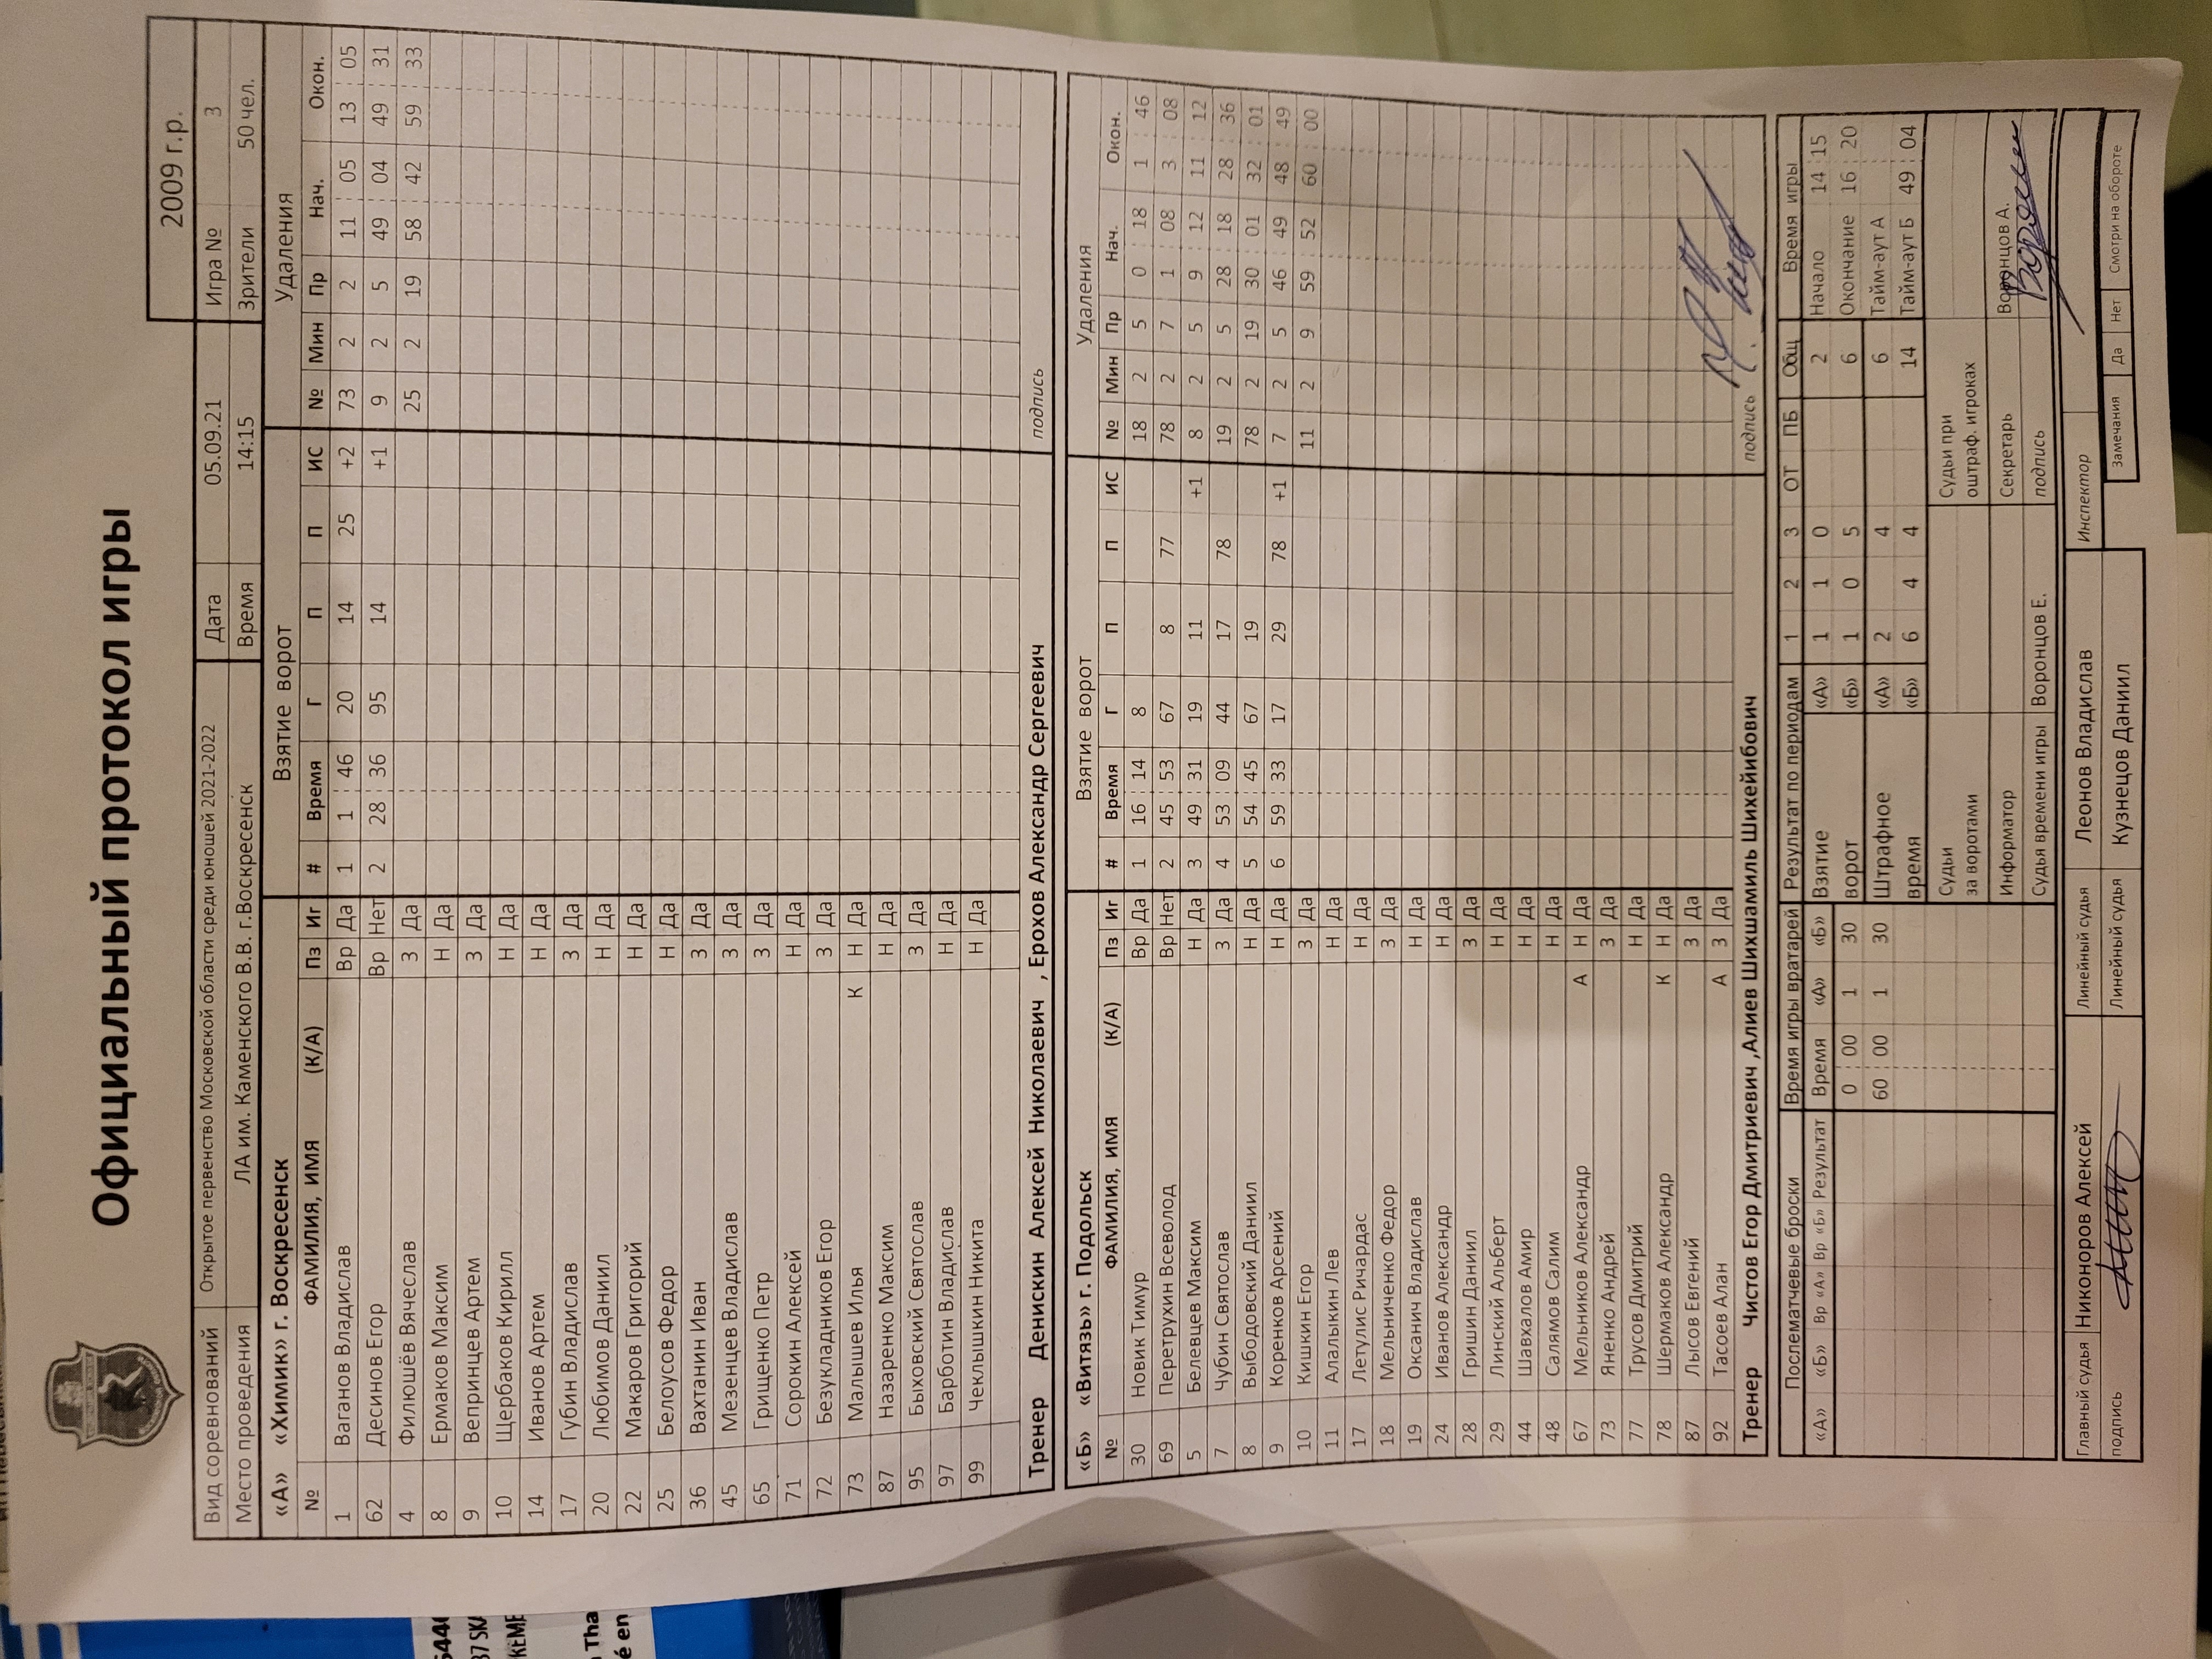 Официальный протокол игры
2009 г.р.
Вид соревнований Открытое первенство Московской области среди юношей 2021-2022 Дата 05.09.21 Игра № 3
Место проведения ЛА им. Каменского В.В. г.Воскресенск Время 14:15 Зрители 50 чел.
«А» «Химик» г. Воскресенск Взятие ворот Удаления
№ ФАМИЛИЯ, ИМЯ (К/А) Пз Иг # Время Г П П ИС № Мин Пр Нач. Окон.
1 Ваганов Владислав Вр Да 1 1 46 20 14 25 +2 73 2 2 11 05 13 05
62 Десинов Егор Вр Нет 2 28 36 95 14 +1 9 2 5 49 04 49 31
4 Филюшёв Вячеслав З Да 25 2 19 58 42 59 33
8 Ермаков Максим Н Да
9 Вепринцев Артем З Да
10 Щербаков Кирилл Н Да
14 Иванов Артем Н Да
17 Губин Владислав З Да
20 Любимов Даниил Н Да
22 Макаров Григорий Н Да
25 Белоусов Федор Н Да
36 Вахтанин Иван З Да
45 Мезенцев Владислав З Да
65 Грищенко Петр З Да
71 Сорокин Алексей Н Да
72 Безукладников Егор З Да
73 Малышев Илья К Н Да
87 Назаренко Максим Н Да
95 Быховский Святослав З Да
97 Барботин Владислав Н Да
99 Чеклышкин Никита Н Да
Тренер Денискин Алексей Николаевич , Ерохов Александр Сергеевич подпись
«Б» «Витязь» г. Подольск Взятие ворот Удаления
№ ФАМИЛИЯ, ИМЯ (К/А) Пз Иг # Время Г П П ИС № Мин Пр Нач. Окон.
30 Новик Тимур Вр Да 1 16 14 8 18 2 5 0 18 1 46
69 Перетрухин Всеволод Вр Нет 2 45 53 67 8 77 78 2 7 1 08 3 08
5 Белевцев Максим Н Да 3 49 31 19 11 +1 8 2 5 9 12 11 12
7 Чубин Святослав З Да 4 53 09 44 17 78 19 2 5 28 18 28 36
8 Выбодовский Даниил Н Да 5 54 45 67 19 78 2 19 30 01 32 01
9 Коренков Арсений Н Да 6 59 33 17 29 78 +1 7 2 5 46 49 48 49
10 Кишкин Егор З Да 11 2 9 59 52 60 00
11 Алалыкин Лев Н Да
17 Летулис Ричардас Н Да
18 Мельниченко Федор З Да
19 Оксанич Владислав Н Да
24 Иванов Александр Н Да
28 Гришин Даниил З Да
29 Линский Альберт Н Да
44 Шавхалов Амир Н Да
48 Салямов Салим Н Да
67 Мельников Александр А Н Да
73 Яненко Андрей З Да
77 Трусов Дмитрий Н Да
78 Шермаков Александр К Н Да
87 Лысов Евгений З Да
92 Тасоев Алан А З Да
Тренер Чистов Егор Дмитриевич ,Алиев Шихшамиль Шихейибович подпись
Послематчевые броски Время игры вратарей Результат по периодам 1 2 3 ОТ ПБ Общ Время игры
«А» «Б» Вр «А» Вр «Б» Результат Время «А» «Б» Взятие «А» 1 1 0 2 Начало 14 15
0 00 1 30 ворот «Б» 1 0 5 6 Окончание 16 20
60 00 1 30 Штрафное «А» 2 4 6 Тайм-аут А
время «Б» 6 4 4 14 Тайм-аут Б 49 04
Судьи за воротами Судьи при оштраф. игроках
Информатор Секретарь Воронцов А.
Судья времени игры Воронцов Е. подпись
Главный судья Никоноров Алексей Линейный судья Леонов Владислав Инспектор
подпись Линейный судья Кузнецов Даниил Замечания Да Нет Смотри на обороте